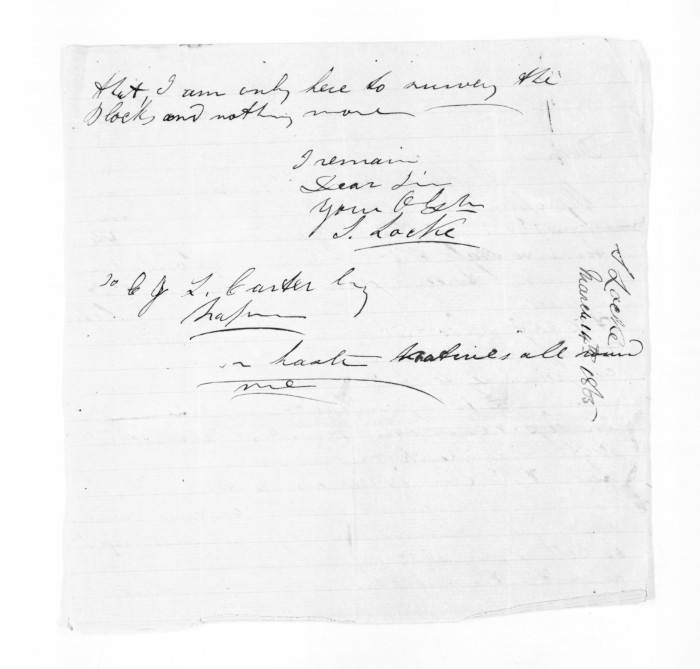 that, I am only here to survey the
blocks and nothing more
I remain
Dear Sir
Your Obt
S. Locke
To C J L. Carter Esq
Napier
in haste Natives all round
me
S Locke
March 14th 1865